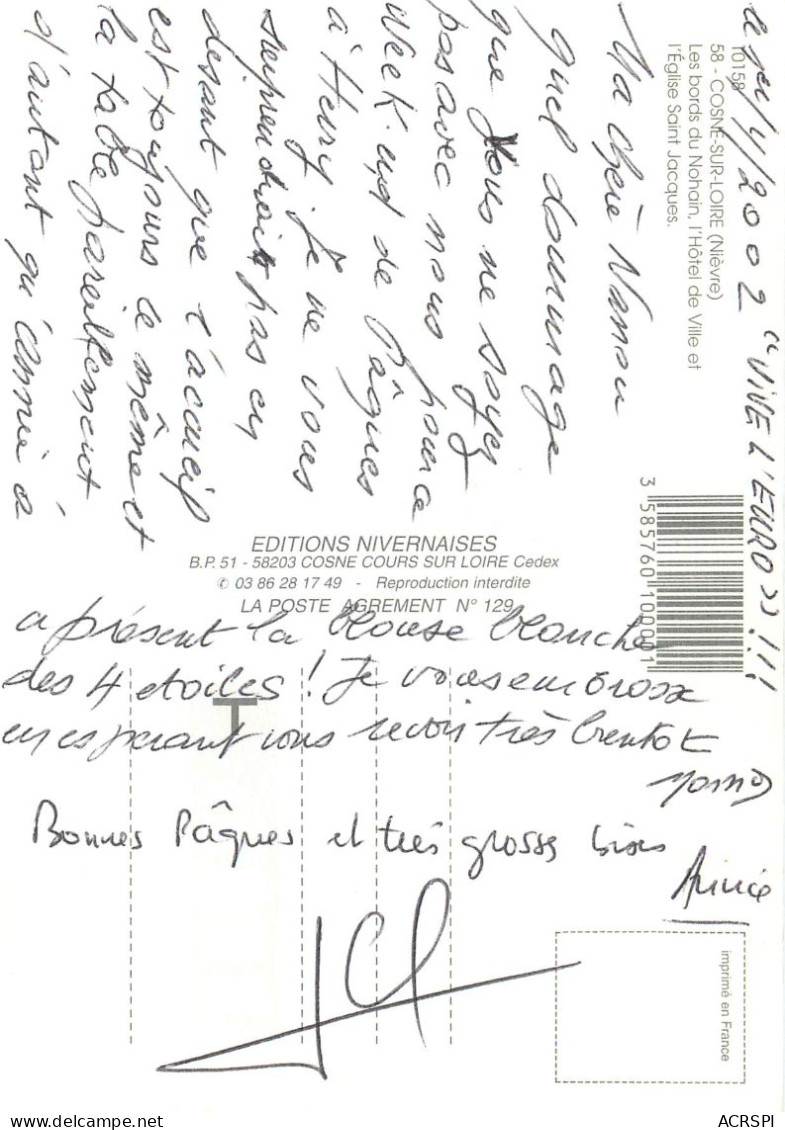 le 1er/4/2002 "VIVE L'EURO" !!!
10158
58 - COSNE-SUR-LOIRE (Nièvre)
Les bords du Nohain, l'Hôtel de Ville et
l'Église Saint Jacques.
Ma chère Nanou
quel dommage
que vous ne soyez
pas avec nous pour ce
week.end de Pâques
à Henry. je ne vous
surprendrait pas en
disant que l'accueil
est toujours le même et
la table pareillement
d'autant qu'Annie a
3 585760 100001
EDITIONS NIVERNAISES
B.P. 51 - 58203 COSNE COURS SUR LOIRE Cedex
✆ 03 86 28 17 49 - Reproduction interdite
LA POSTE AGREMENT N° 129
a présent la blouse blanche
des 4 etoiles ! Je vous embrasse
en esperant vous revoir très bientot
T
Bonnes Pâques et très grosses bises
Annie
imprimé en France
ACRSPI